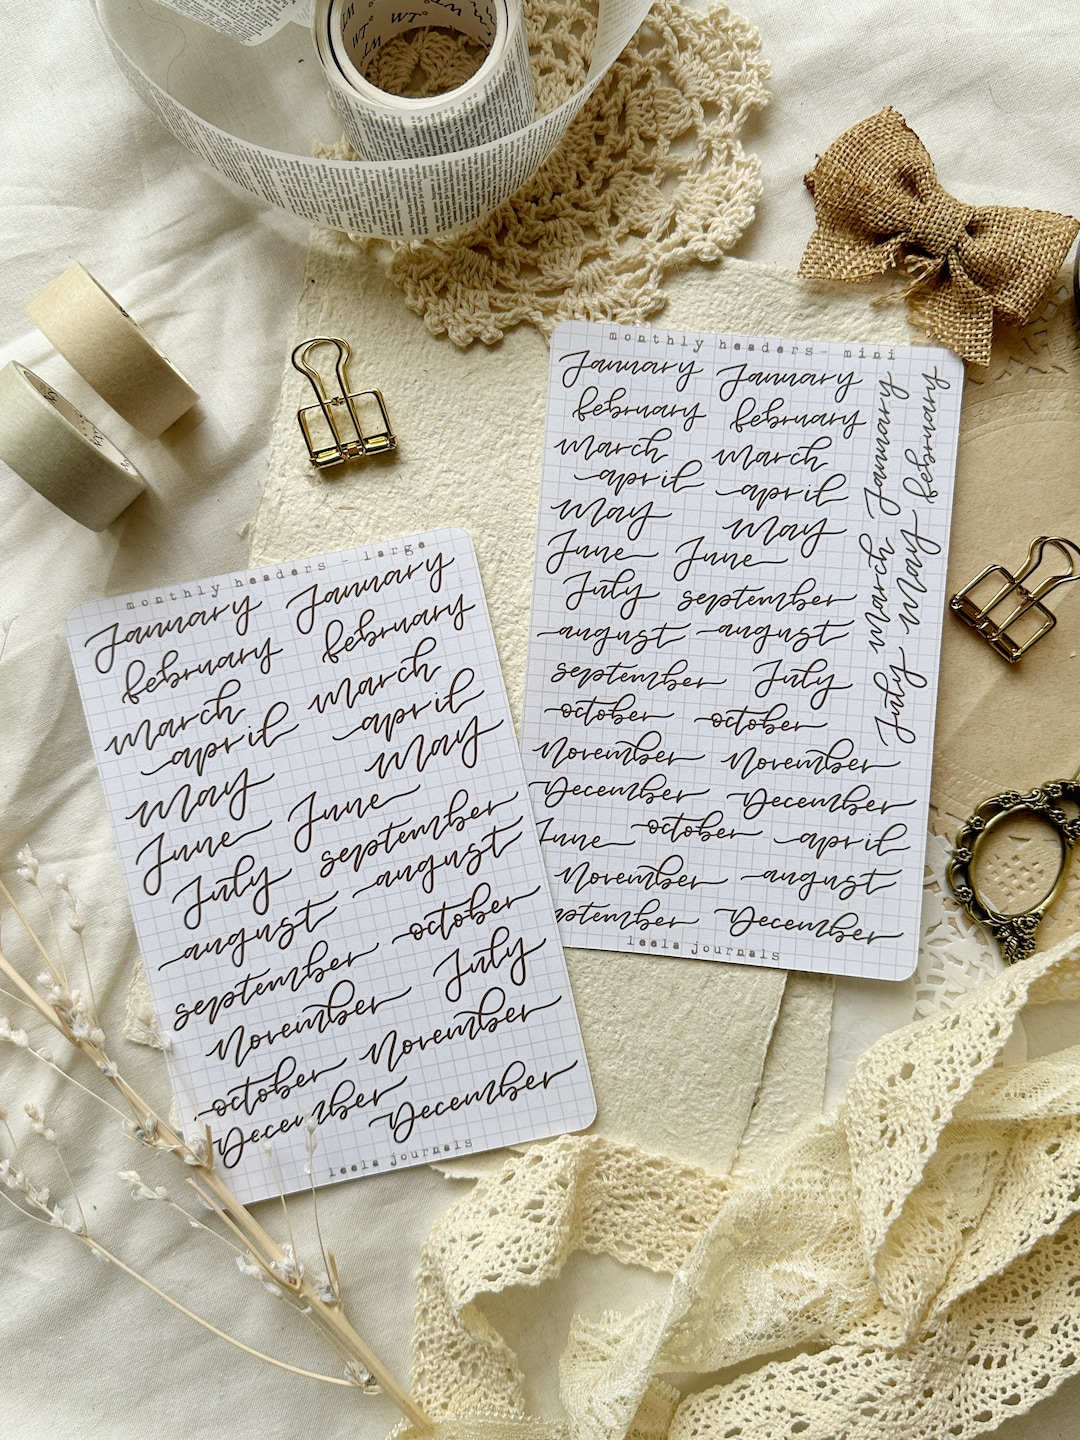 WTO
LM
WTO
LM
monthly headers - mini
January January
february february
march march
april april
May May
June June
July september
august august
september July
october october
November November
December December
June october april
November august
December
January february
March May
July
leela journals
monthly headers - large
January January
february february
march march
april april
May May
June June
July september
august august
september october
November July
october November
December December
leela journals